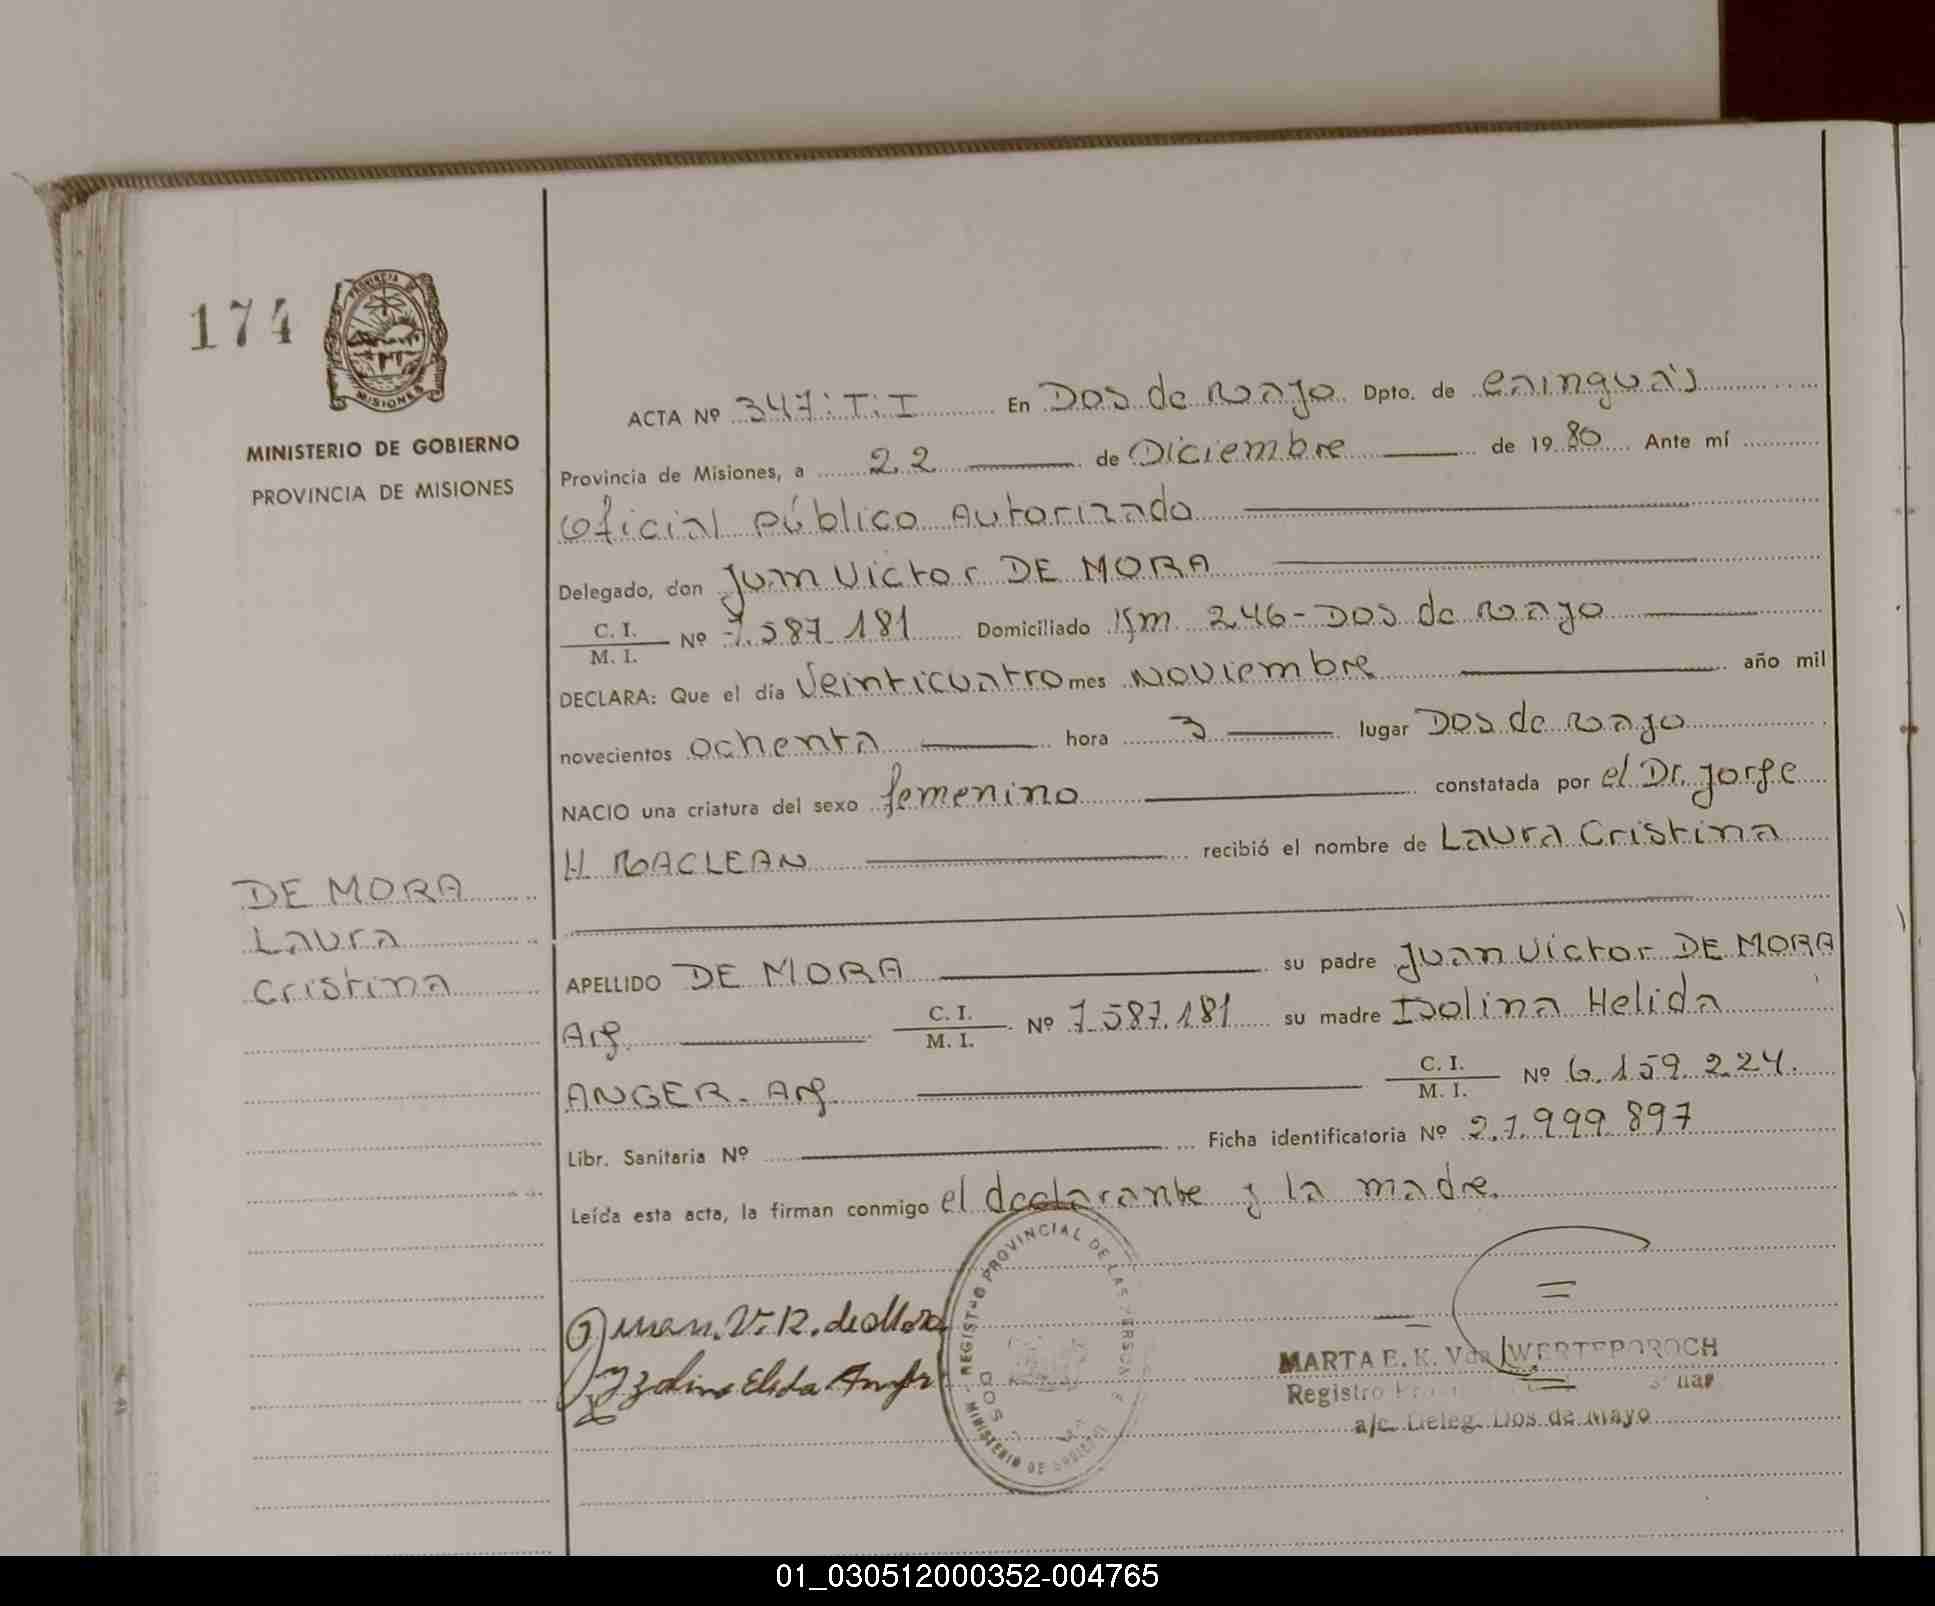 174
PROVINCIA DE
MISIONES
MINISTERIO DE GOBIERNO
PROVINCIA DE MISIONES
DE MORA
Laura
Cristina
ACTA Nº 347:T:I En Dos de Mayo Dpto. de Cainguás
Provincia de Misiones, a 22 de Diciembre de 19 80 Ante mí
Oficial Público Autorizado
Delegado, don Juan Victor DE MORA
C. I. / M. I. Nº 7.587.181 Domiciliado Km 246-Dos de Mayo
DECLARA: Que el día Veinticuatro mes Noviembre año mil
novecientos ochenta hora 3 lugar Dos de Mayo
NACIO una criatura del sexo femenino constatada por el Dr. Jorge
H. MACLEAN recibió el nombre de Laura Cristina
APELLIDO DE MORA su padre Juan Victor DE MORA
Arg. C. I. / M. I. Nº 7.587.181 su madre Isolina Helida
ANGER. Arg. C. I. / M. I. Nº 6.159.224.
Libr. Sanitaria Nº Ficha identificatoria Nº 27.999.897
Leída esta acta, la firman conmigo el declarante y la madre.
Juan. V. R. de Mora
Izolina Elida
REGISTRO PROVINCIAL DE LAS PERSONAS
MINISTERIO DE GOBIERNO
DOS
MARTA E. K. Vda WERTEPOROCH
Registro
a/c. Deleg. Dos de Mayo
01_030512000352-004765